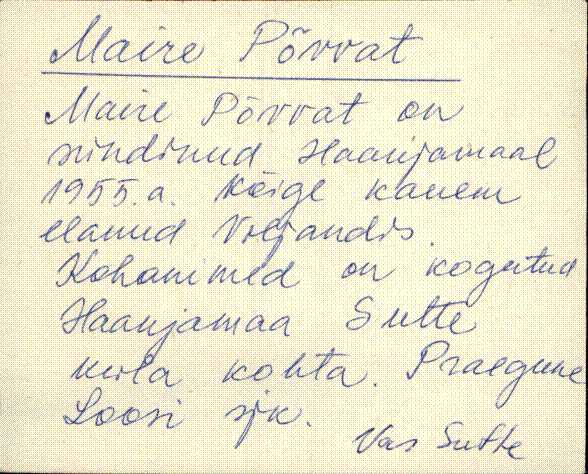 Maire Põvvat
Maire Põvvat on
sündinud Haanjamaal
1955.a. Kõige kauem
elanud Viljandis.
Kohanimed on kogutud
Haanjamaa Sutte
küla kohta. Praegune
Loosi sjk.
Vas Sutte